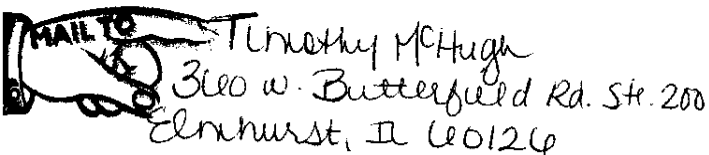 MAIL TO
Timothy McHugh
360 W. Butterfield Rd. Ste. 200
Elmhurst, IL 60126